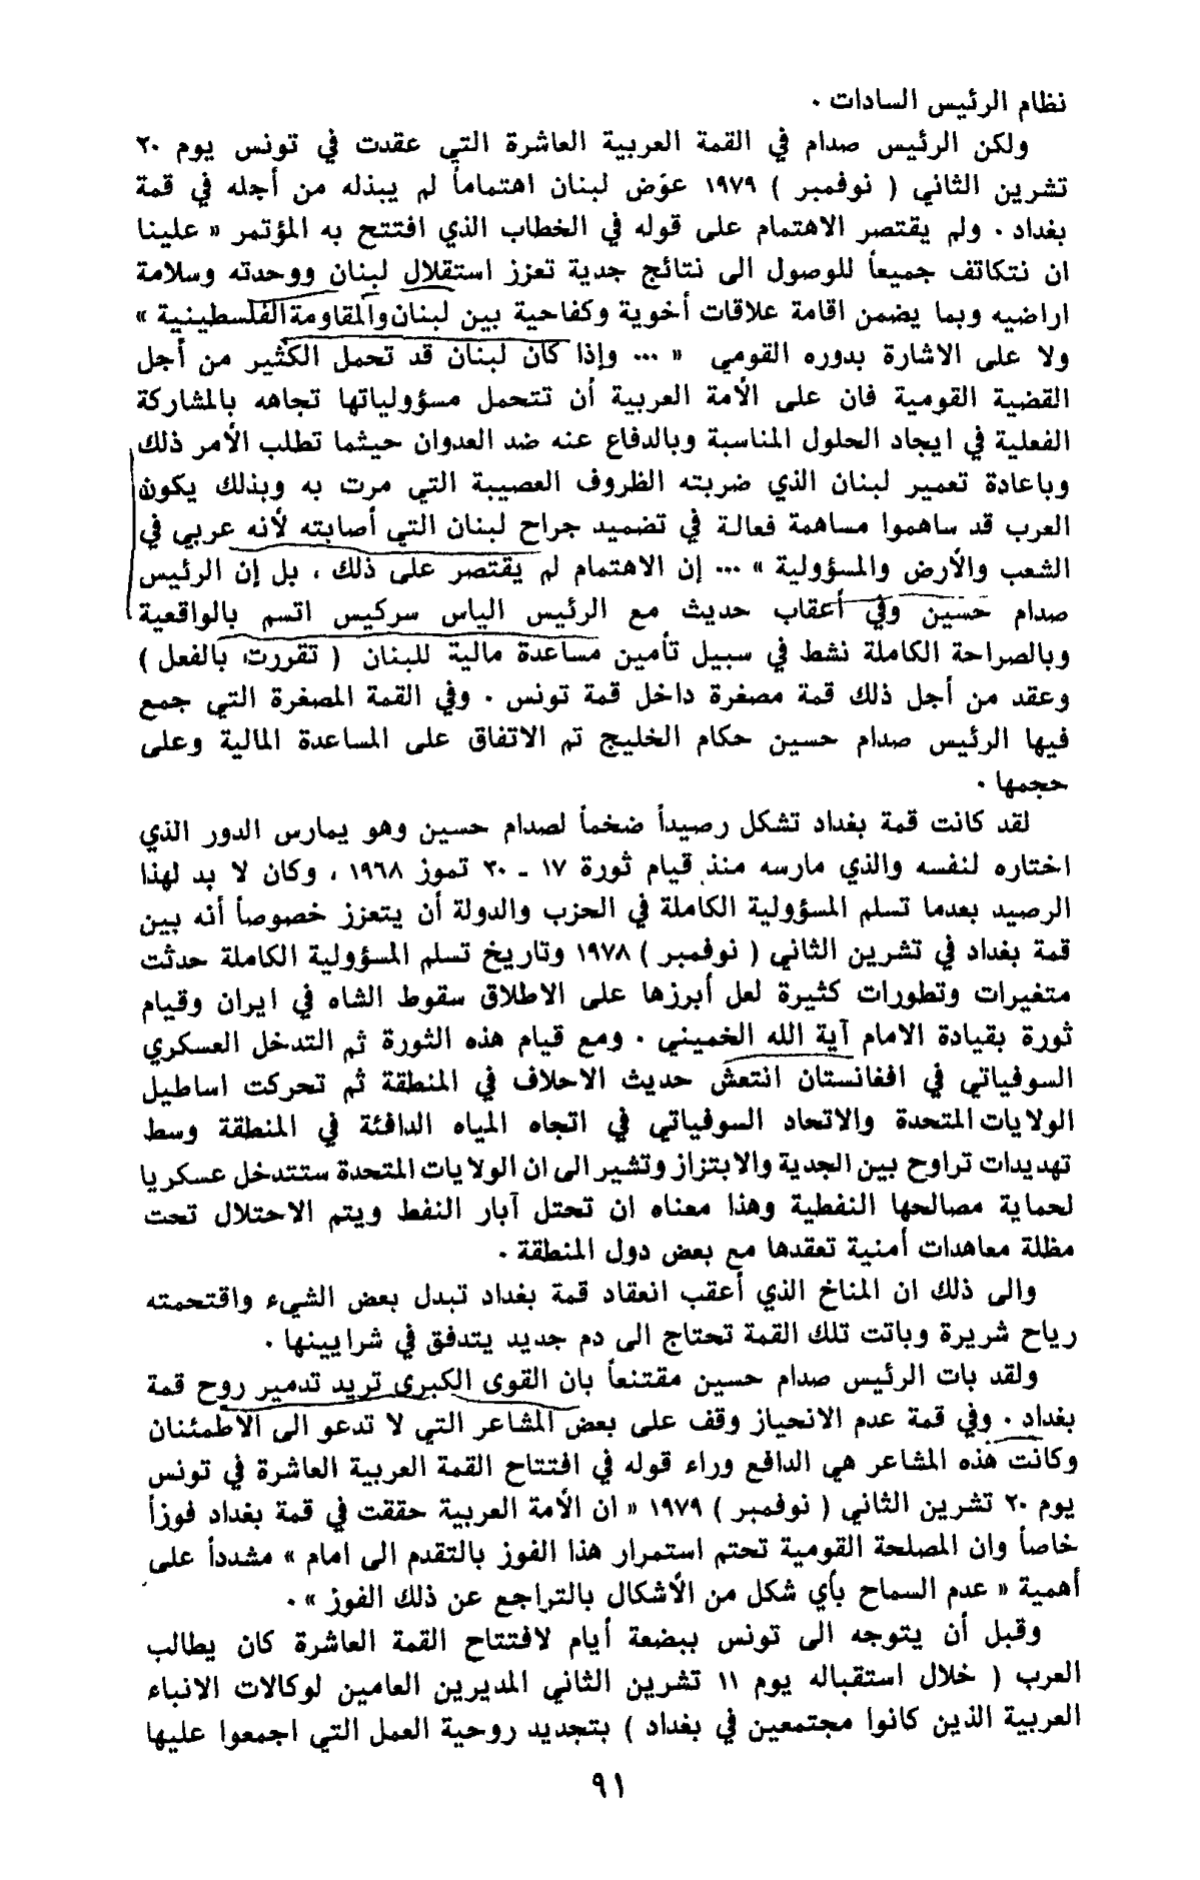 نظام الرئيس السادات .
ولكن الرئيس صدام في القمة العربية العاشرة التي عقدت في تونس يوم ٢٠
تشرين الثاني ( نوفمبر ) ١٩٧٩ عوّض لبنان اهتماماً لم يبذله من أجله في قمة
بغداد . ولم يقتصر الاهتمام على قوله في الخطاب الذي افتتح به المؤتمر « علينا
ان نتكاتف جميعاً للوصول الى نتائج جدية تعزز استقلال لبنان ووحدته وسلامة
اراضيه وبما يضمن اقامة علاقات أخوية وكفاحية بين لبنان والمقاومة الفلسطينية »
ولا على الاشارة بدوره القومي « ... وإذا كان لبنان قد تحمل الكثير من أجل
القضية القومية فان على الأمة العربية أن تتحمل مسؤولياتها تجاهه بالمشاركة
الفعلية في ايجاد الحلول المناسبة وبالدفاع عنه ضد العدوان حيثما تطلب الأمر ذلك
وباعادة تعمير لبنان الذي ضربته الظروف العصيبة التي مرت به وبذلك يكون
العرب قد ساهموا مساهمة فعالة في تضميد جراح لبنان التي أصابته لأنه عربي في
الشعب والأرض والمسؤولية » ... إن الاهتمام لم يقتصر على ذلك ، بل إن الرئيس
صدام حسين وفي أعقاب حديث مع الرئيس الياس سركيس اتسم بالواقعية
وبالصراحة الكاملة نشط في سبيل تأمين مساعدة مالية للبنان ( تقررت بالفعل )
وعقد من أجل ذلك قمة مصغرة داخل قمة تونس . وفي القمة المصغرة التي جمع
فيها الرئيس صدام حسين حكام الخليج تم الاتفاق على المساعدة المالية وعلى
حجمها .
لقد كانت قمة بغداد تشكل رصيداً ضخماً لصدام حسين وهو يمارس الدور الذي
اختاره لنفسه والذي مارسه منذ قيام ثورة ١٧ - ٣٠ تموز ١٩٦٨ ، وكان لا بد لهذا
الرصيد بعدما تسلم المسؤولية الكاملة في الحزب والدولة أن يتعزز خصوصاً أنه بين
قمة بغداد في تشرين الثاني ( نوفمبر ) ١٩٧٨ وتاريخ تسلم المسؤولية الكاملة حدثت
متغيرات وتطورات كثيرة لعل أبرزها على الاطلاق سقوط الشاه في ايران وقيام
ثورة بقيادة الامام آية الله الخميني . ومع قيام هذه الثورة ثم التدخل العسكري
السوفياتي في افغانستان انتعش حديث الاحلاف في المنطقة ثم تحركت اساطيل
الولايات المتحدة والاتحاد السوفياتي في اتجاه المياه الدافئة في المنطقة وسط
تهديدات تراوح بين الجدية والابتزاز وتشير الى ان الولايات المتحدة ستتدخل عسكريا
لحماية مصالحها النفطية وهذا معناه ان تحتل آبار النفط ويتم الاحتلال تحت
مظلة معاهدات أمنية تعقدها مع بعض دول المنطقة .
والى ذلك ان المناخ الذي أعقب انعقاد قمة بغداد تبدل بعض الشيء واقتحمته
رياح شريرة وباتت تلك القمة تحتاج الى دم جديد يتدفق في شرايينها .
ولقد بات الرئيس صدام حسين مقتنعاً بان القوى الكبرى تريد تدمير روح قمة
بغداد . وفي قمة عدم الانحياز وقف على بعض المشاعر التي لا تدعو الى الاطمئنان
وكانت هذه المشاعر هي الدافع وراء قوله في افتتاح القمة العربية العاشرة في تونس
يوم ٢٠ تشرين الثاني ( نوفمبر ) ١٩٧٩ « ان الأمة العربية حققت في قمة بغداد فوزاً
خاصاً وان المصلحة القومية تحتم استمرار هذا الفوز بالتقدم الى امام » مشدداً على
أهمية « عدم السماح بأي شكل من الأشكال بالتراجع عن ذلك الفوز » .
وقبل أن يتوجه الى تونس ببضعة أيام لافتتاح القمة العاشرة كان يطالب
العرب ( خلال استقباله يوم ١١ تشرين الثاني المديرين العامين لوكالات الانباء
العربية الذين كانوا مجتمعين في بغداد ) بتجديد روحية العمل التي اجمعوا عليها
٩١